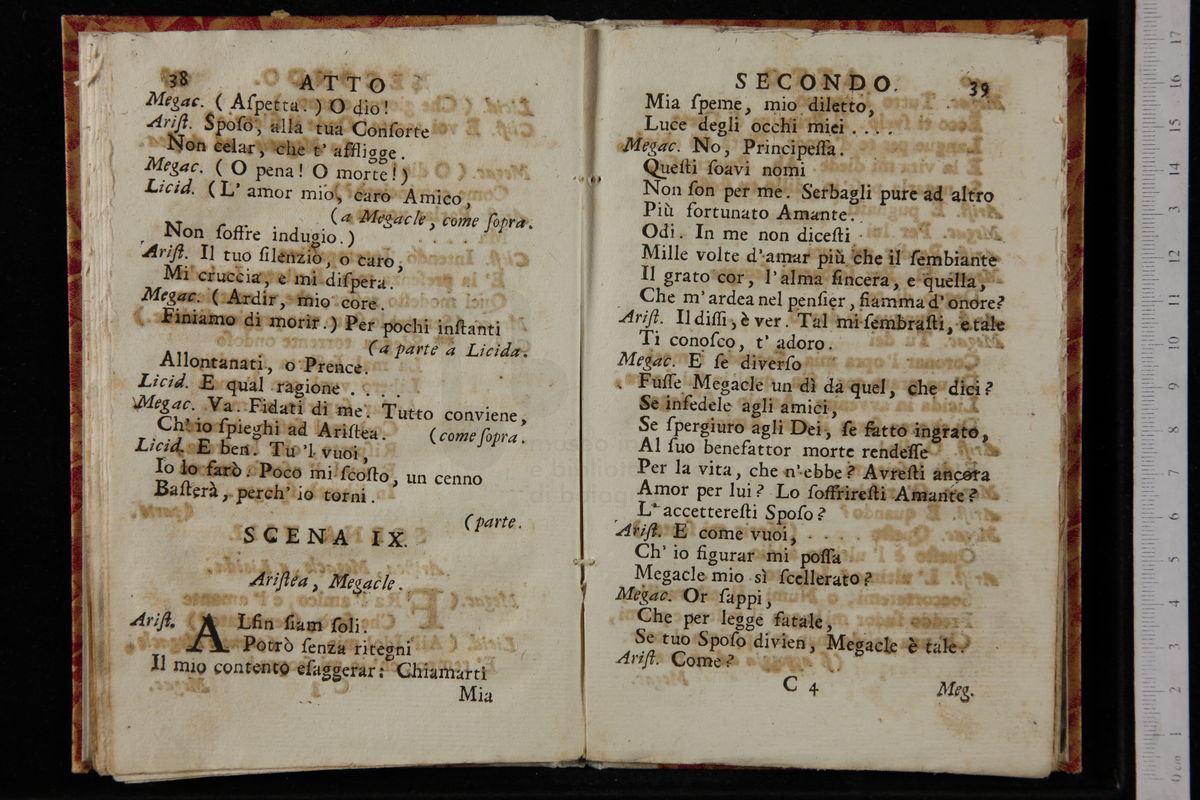 38 ATTO
Megac. ( Aſpetta. ) O dio!
Ariſt. Spoſo, alla tua Conſorte
Non celar, che t' affligge.
Megac. ( O pena! O morte! )
Licid. ( L' amor mio, caro Amico,
(a Megacle, come ſopra.
Non ſoffre indugio. )
Ariſt. Il tuo ſilenzio, o caro,
Mi cruccia, e mi diſpera.
Megac. ( Ardir, mio core.
Finiamo di morir. ) Per pochi inſtanti
(a parte a Licida.
Allontanati, o Prence.
Licid. E qual ragione . . . .
Megac. Va. Fidati di me. Tutto conviene,
Ch' io ſpieghi ad Ariſtea. (come ſopra.
Licid. E ben. Tu 'l vuoi,
Io lo farò. Poco mi ſcoſto, un cenno
Baſterà, perch' io torni.
(parte.
SCENA IX.
Ariſtea, Megacle.
Ariſt. ALfin ſiam ſoli.
Potrò ſenza ritegni
Il mio contento eſaggerar: Chiamarti
Mia
SECONDO. 39
Mia ſpeme, mio diletto,
Luce degli occhi miei . . . .
Megac. No, Principeſſa.
Queſti ſoavi nomi
Non ſon per me. Serbagli pure ad altro
Più fortunato Amante.
Odi. In me non diceſti
Mille volte d' amar più che il ſembiante
Il grato cor, l' alma ſincera, e quella,
Che m' ardea nel penſier, fiamma d' onore?
Ariſt. Il diſſi, è ver. Tal mi ſembraſti, e tale
Ti conoſco, t' adoro.
Megac. E ſe diverſo
Fuſſe Megacle un dì da quel, che dici?
Se infedele agli amici,
Se ſpergiuro agli Dei, ſe fatto ingrato,
Al ſuo benefattor morte rendeſſe
Per la vita, che n' ebbe? Avreſti ancora
Amor per lui? Lo ſoffrireſti Amante?
L' accettereſti Spoſo?
Ariſt. E come vuoi,
Ch' io figurar mi poſſa
Megacle mio sì ſcellerato?
Megac. Or ſappi,
Che per legge fatale,
Se tuo Spoſo divien, Megacle è tale.
Ariſt. Come?
C 4 Meg.